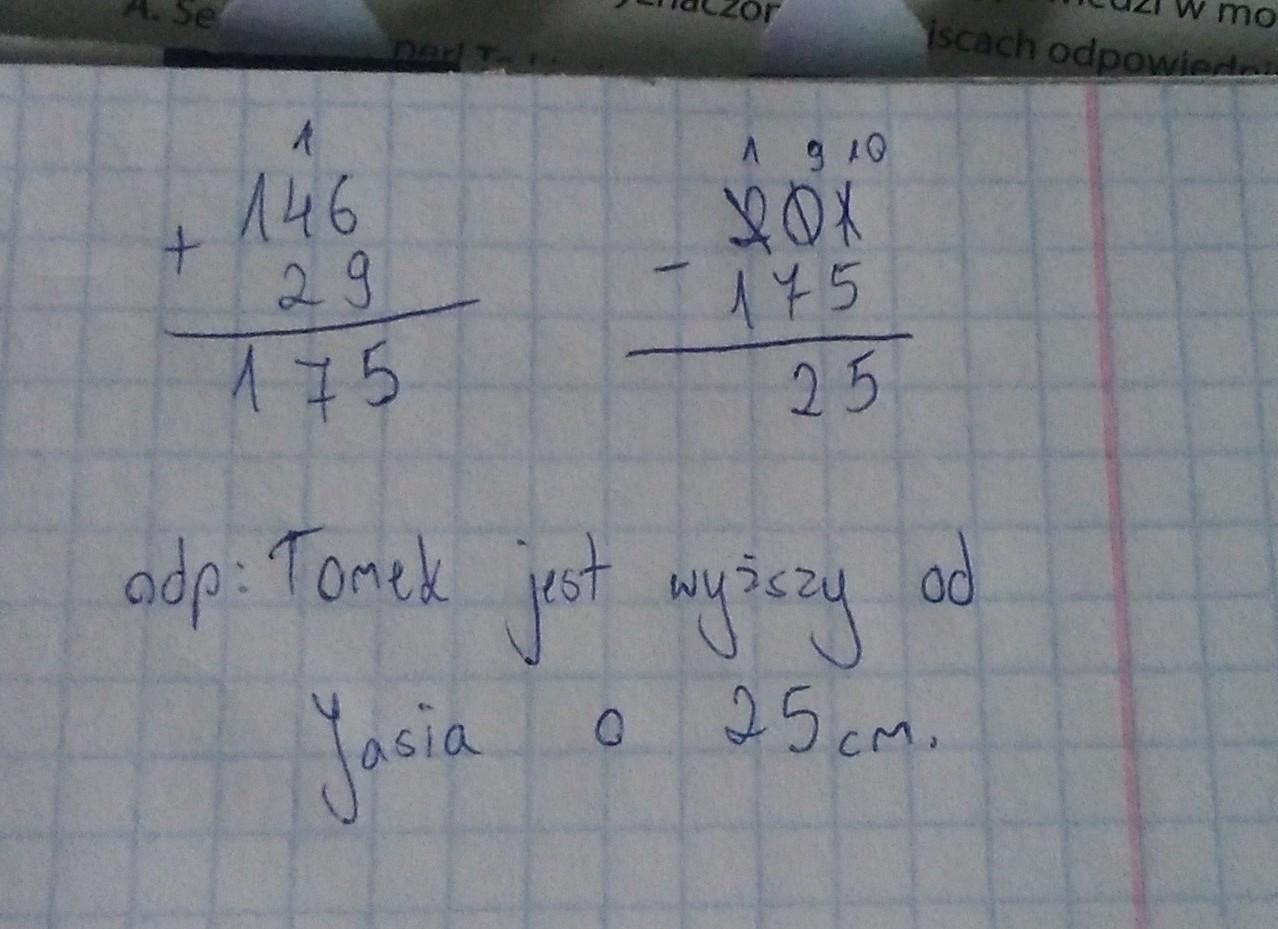 A. Se
iscach odpowiedni
1
146
+ 29
175
1 9 10
201
- 175
25
odp: Tomek jest wyższy od
Jasia o 25 cm.